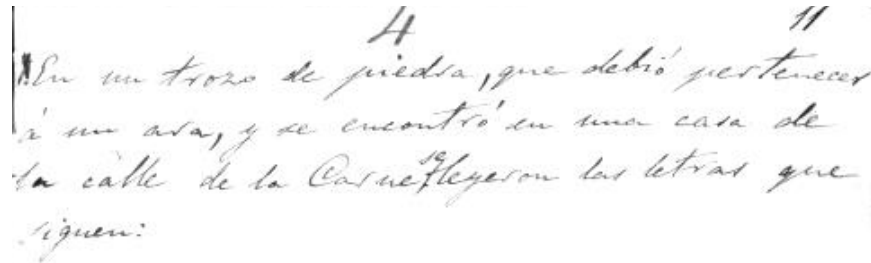 4 11
En un trozo de piedra, que debió pertenecer
á un ara, y se encontró en una casa de
la calle de la Carne, se leyeron las letras que
siguen: